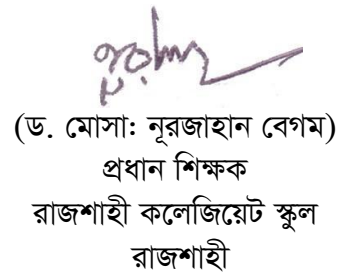 (ড. মোসা: নূরজাহান বেগম)
প্রধান শিক্ষক
রাজশাহী কলেজিয়েট স্কুল
রাজশাহী